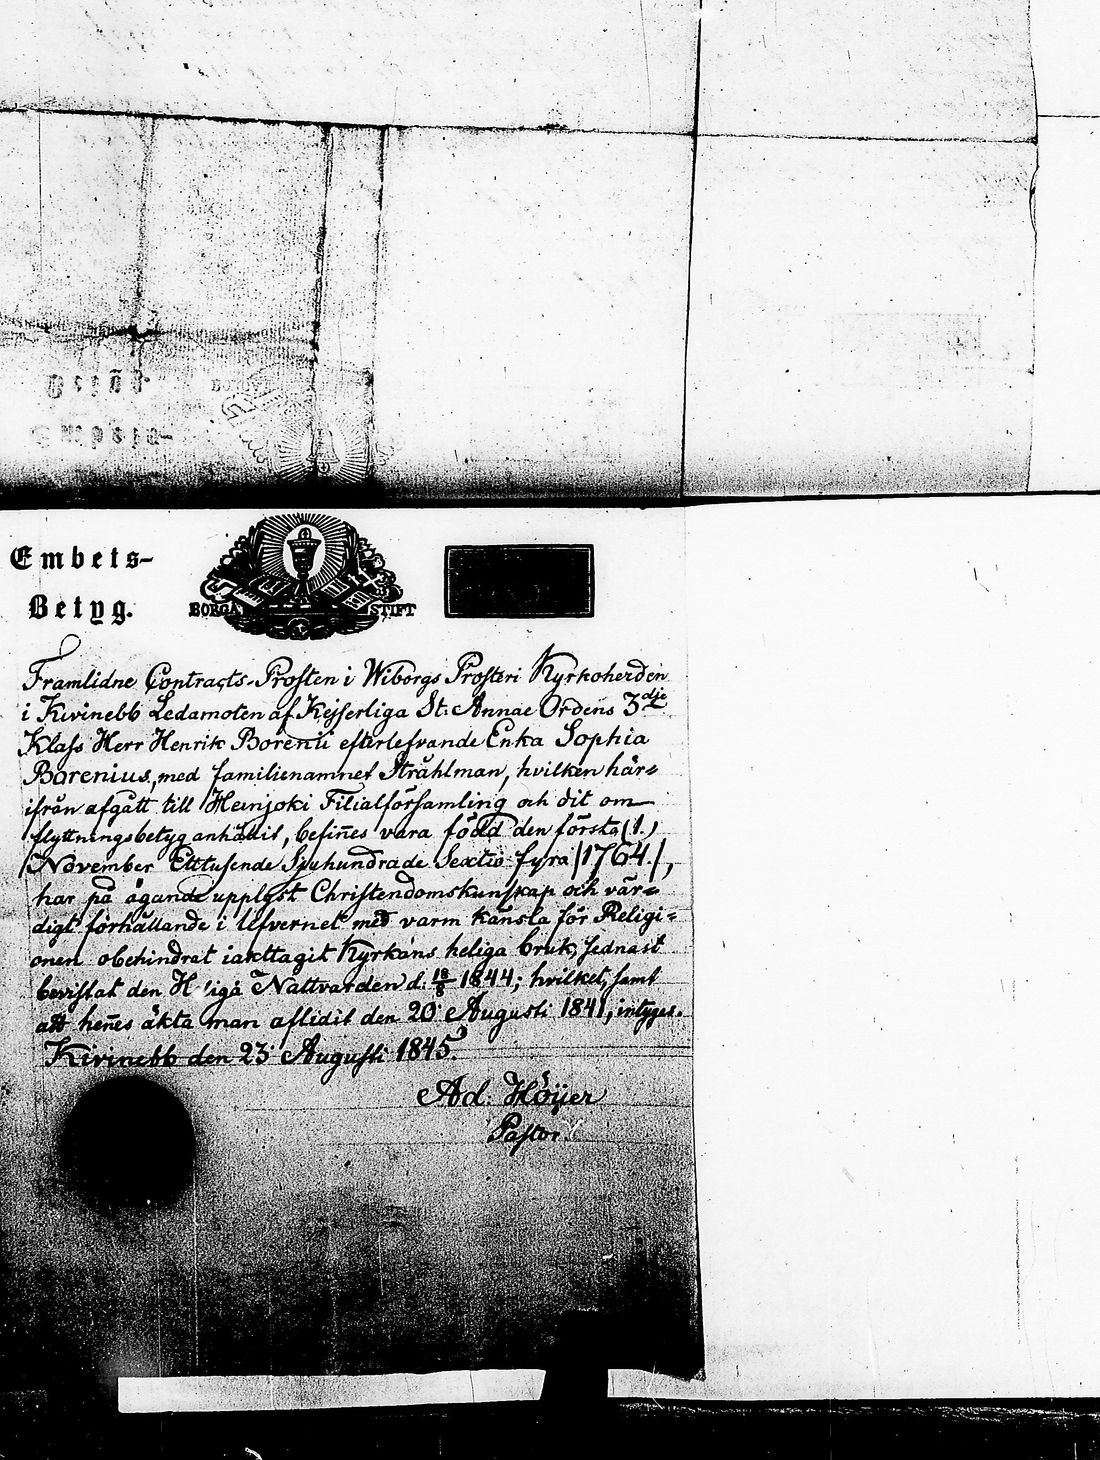 Embets-
Betyg.
BORGÅ STIFT
Framlidne Contracts-Prosten i Wiborgs Prosteri Kyrkoherden
i Kivinebb Ledamoten af Kejserliga St: Annae Ordens 3dje
Klass Herr Henrik Borenii efterlefvande Enka Sophia
Borenius, med familienamnet Stråhlman, hvilken här=
ifrån afgått till Heinjoki Filialförsamling och dit om—
flyttningsbetyg anhållit, befin̄es vara född den första (1.)
November Ettusende Sjuhundrade Sextio fyra (1764.),
har på ägande upplyst Christendomskunskap och vär=
digt förhållande i lefvernet med varm känsla för Religi=
onen obehindrat iakttagit Kyrkans heliga bruk, sednast
bevistat den H liga Nattvarden d. 18/8 1844; hvilket, samt
att hen̄es äkta man aflidit den 20 Augusti 1841, intygas.
Kivinebb den 23 Augusti 1845.
Ad. Höijer
Pastor.